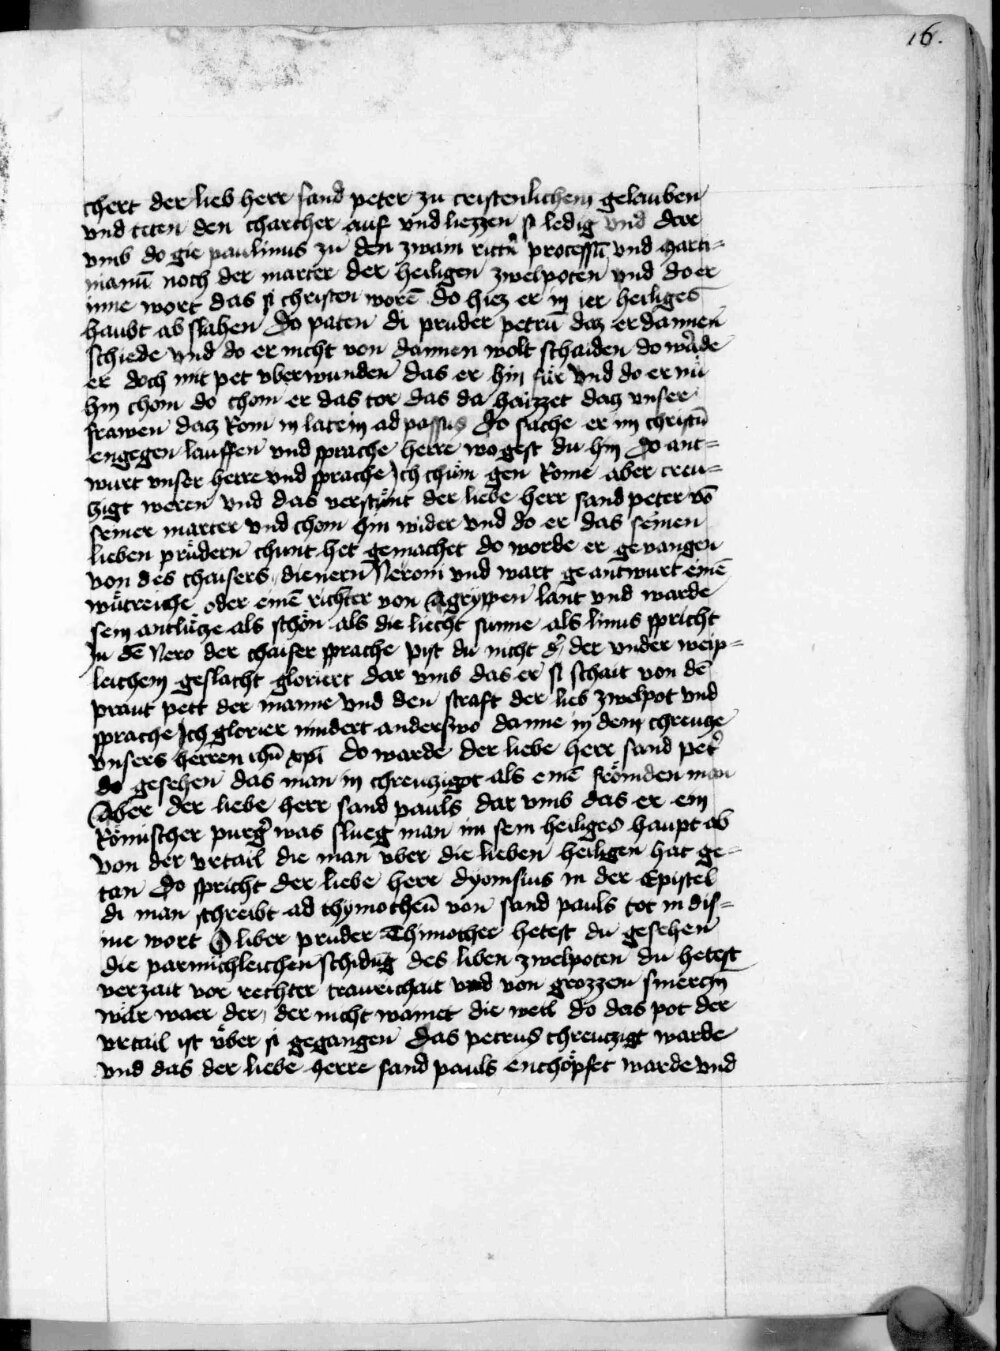 16.
chert der lieb herr sand peter zu cristenlichem gelauben
vnd teten den charcher auf vnd liezzen si ledig vnd dar
vmb do gie paulinus zu den zwain rittn̄ processū vnd marti=
nianū noch der marter der heiligen zwelpoten vnd do er
inne wort das si christen worē do hiez er in ier heiliges
haubt ab slahen Do paten di pruder petrū daz er dannen
schiede vnd do er nicht von dannen wolt schaiden do wu̇rde
er doch mit pet vberwunden das er hin für vnd do er nu
hin chom do chom er das tor das da haizzet daz vnser
frawen daz Rom in latein ad passus Do sache er im christū
engegen lauffen vnd sprache herre wo gest du hin Do ant=
wurt vnser herre vnd sprache Ich chüm gen Rome aber creu=
czigt weren vnd das verstünt der liebe herr sand peter vō
seiner marter vnd chom hin wider vnd do er das seinen
lieben prüdern chunt het gemachet do worde er gevangen
von des chaisers dienern Neroni vnd wart geantwurt einē
wütreiche oder einē richter von Agryppen lant vnd warde
sein antlütze als schön als die liecht sunne als linus spricht
Zu dē Nero der chaiser sprache pist du nicht der der vnder weip=
leichem geslacht gloriert dar vmb das er si schait von dē
praut pett der manne vnd den straft der lieb zwelpot vnd
sprache Ich glorier nindert anderswo danne in dem chreutze
vnsers herren ihū xpī do warde der liebe herr sand pet̄
do gesehen das man in chreuczigot als einē frömden man
Aber der liebe herr sand pauls dar vmb das er ein
Römischer purḡ was slueg man im sein heiliges haupt ab
von der vrtail die man vber die lieben heiligen hat ge=
tan Do spricht der liebe herr dyonisius in der Epistel
di man schreibt ad thymotheū von sand pauls tot in dis=
ine wort O liber pruder Thimother hetest du gesehen
die parmichleichen schidūg des liben zwelpoten du hetest
verzait vor rechter traurichait vnd von grozzem smerczn
wär waer der der nicht wainet die weil do das pot der
vrtail ist über si gegangen Das petrus chreuczigt warde
vnd das der liebe herre sand pauls enchöpfet warde vnd